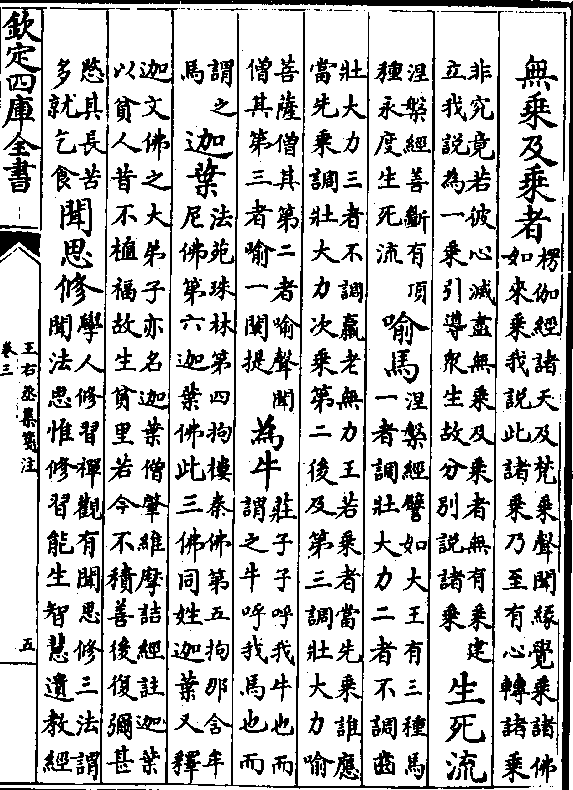 無乘及乘者楞伽經諸天及梵乘聲聞緣覺乘諸佛如來乘我說此諸乘乃至有心轉諸乘
非究竟若彼心滅盡無乘及乘者無有乘建立我說為一乘引導衆生故分別說諸乘生死流
涅槃經善斷有頂種永度生死流喻馬涅槃經譬如大王有三種馬一者調壯大力二者不調齒
壯大力三者不調羸老無力王若乘者當先乘誰應當先乘調壯大力次乘第二後及第三調壯大力喻
菩薩僧其第二者喻聲聞僧其第三者喻一闡提為牛莊子子呼我牛也而謂之牛呼我馬也而
謂之馬迦葉法苑珠林第四拘樓秦佛第五拘那含牟尼佛第六迦葉佛此三佛同姓迦葉又釋
迦文佛之大弟子亦名迦葉僧肇維摩詰經註迦葉以貧人昔不植福故生貧里若今不積善後復彌甚
愍其長苦多就乞食聞思修學人修習禪觀有聞思修三法謂聞法思惟修習能生智慧遺教經
欽定四庫全書
王右丞集箋注
卷三
五